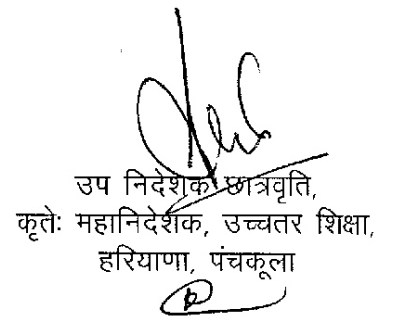 उप निदेशक छात्रवृति,
कृतेः महानिदेशक, उच्चतर शिक्षा,
हरियाणा, पंचकूला